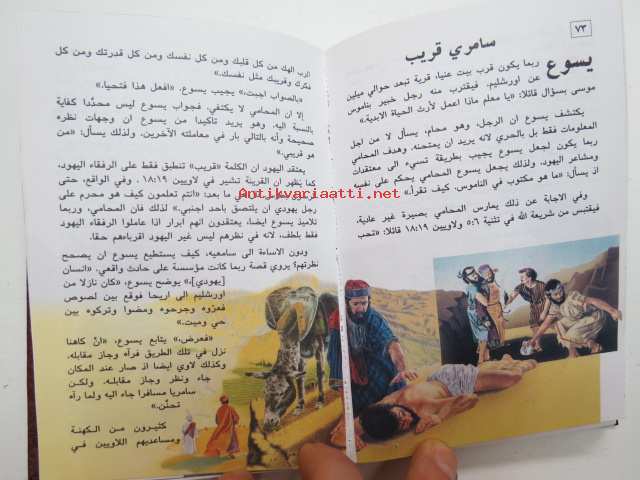 ٧٣
سامري قريب
يسوع ربما يكون قرب بيت عنيا، قرية تبعد حوالي ميلين
عن اورشليم. فيقترب منه رجل خبير بناموس
موسى بسؤال قائلا: «يا معلم ماذا اعمل لأرث الحياة الابدية.»
يكتشف يسوع ان الرجل، وهو محامٍ، يسأل لا من اجل
المعلومات فقط بل بالحري لانه يريد ان يمتحنه. وهدف المحامي
ربما يكون لجعل يسوع يجيب بطريقة تسيء الى معتقدات
ومشاعر اليهود. ولذلك يجعل يسوع المحامي يحكم على نفسه
اذ يسأل: «ما هو مكتوب في الناموس. كيف تقرأ.»
وفي الاجابة عن ذلك يمارس المحامي بصيرة غير عادية.
فيقتبس من شريعة الله في تثنية ٦:٥ ولاويين ١٩:١٨ قائلا: «تحب
الرب الهك من كل قلبك ومن كل نفسك ومن كل قدرتك ومن كل
فكرك وقريبك مثل نفسك.»
«بالصواب اجبت،» يجيب يسوع. «افعل هذا فتحيا.»
إلا ان المحامي لا يكتفي. فجواب يسوع ليس محدَّدا كفاية
بالنسبة اليه. وهو يريد تأكيدا من يسوع ان وجهات نظره
صحيحة وأنه بالتالي بار في معاملته الآخرين. ولذلك يسأل: «من
هو قريبي.»
يعتقد اليهود ان الكلمة «قريب» تنطبق فقط على الرفقاء اليهود،
كما يظهر ان القرينة تشير في لاويين ١٩:١٨. وفي الواقع، حتى
ما بعد: «انتم تعلمون كيف هو محرم على
رجل يهودي ان يلتصق باحد اجنبي.» ولذلك فان المحامي، وربما
تلاميذ يسوع ايضا، يعتقدون انهم ابرار اذا عاملوا الرفقاء اليهود
فقط بلطف، لانه في نظرهم ليس غير اليهود اقرباءهم حقا.
ودون الاساءة الى سامعيه، كيف يستطيع يسوع ان يصحح
نظرتهم؟ يروي قصة ربما كانت مؤسسة على حادث واقعي. «انسان
[يهودي]،» يوضح يسوع، «كان نازلا من
اورشليم الى اريحا فوقع بين لصوص
فعرّوه وجرحوه ومضوا وتركوه بين
حي وميت.»
«فعرض،» يتابع يسوع، «انّ كاهنا
نزل في تلك الطريق فرآه وجاز مقابله.
وكذلك لاوي ايضا اذ صار عند المكان
جاء ونظر وجاز مقابله. ولكن
سامريا مسافرا جاء اليه ولما رآه
تحنَّن.»
كثيرون من الكهنة
ومساعديهم اللاويين في
Antikvariaatti.net